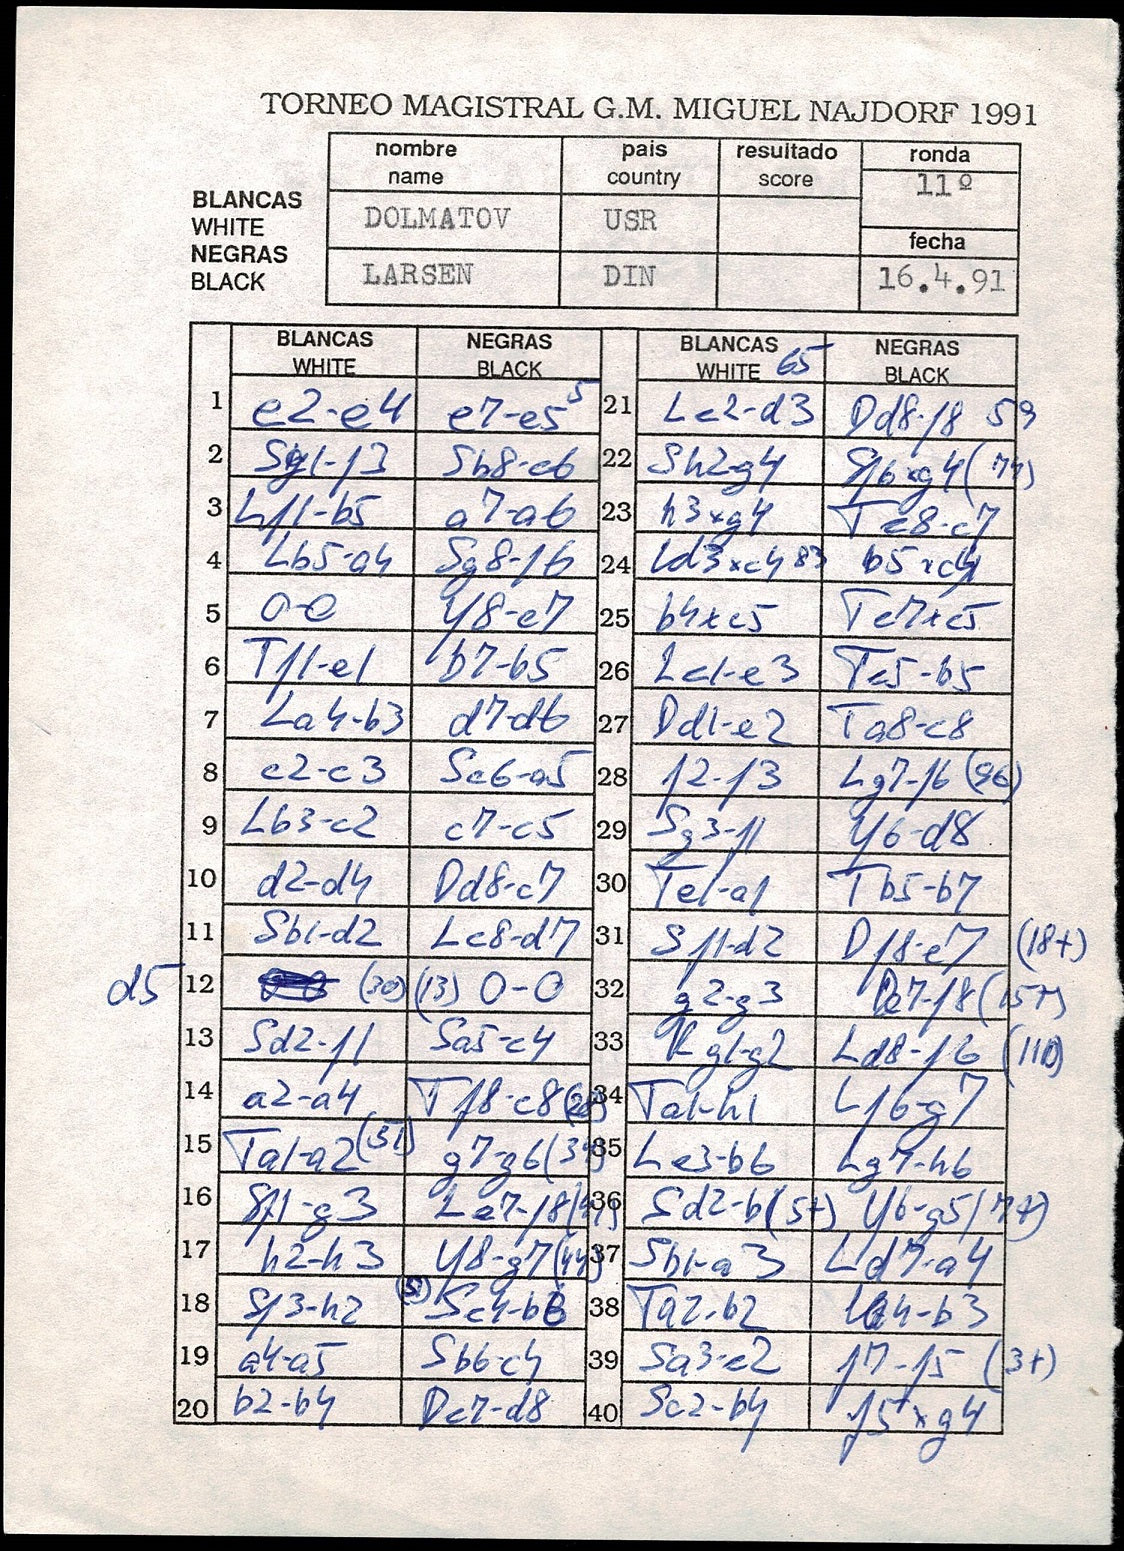 TORNEO MAGISTRAL G.M. MIGUEL NAJDORF 1991
nombre name pais country resultado score ronda 11º
BLANCAS WHITE DOLMATOV USR fecha
NEGRAS BLACK LARSEN DIN 16.4.91
BLANCAS WHITE NEGRAS BLACK BLANCAS WHITE 65 NEGRAS BLACK
1 e2-e4 e7-e5 5 21 Lc2-d3 Dd8-f8 59
2 Sg1-f3 Sb8-c6 22 Sh2-g4 Sf6xg4 (74)
3 Lf1-b5 a7-a6 23 h3xg4 Tc8-c7
4 Lb5-a4 Sg8-f6 24 Ld3xc4 83 b5xc4
5 0-0 Lf8-e7 25 b4xc5 Tc7xc5
6 Tf1-e1 b7-b5 26 Lc1-e3 Tc5-b5
7 La4-b3 d7-d6 27 Dd1-e2 Ta8-c8
8 c2-c3 Sc6-a5 28 f2-f3 Lg7-f6 (96)
9 Lb3-c2 c7-c5 29 Sg3-f1 Lf6-d8
10 d2-d4 Dd8-c7 30 Te1-a1 Tb5-b7
11 Sb1-d2 Lc8-d7 31 Sf1-d2 Df8-e7 (18+)
d5 12 (30) (13) 0-0 32 g2-g3 De7-f8 (15+)
13 Sd2-f1 Sa5-c4 33 Kg1-g2 Ld8-f6 (110)
14 a2-a4 Tf8-c8 34 Ta1-h1 Lf6-g7
15 Ta1-a2 (31) g7-g6 35 Le3-b6 Lg7-h6
16 Sf1-g3 Le7-f8 36 Sd2-b1 (5+) Lh6-g5 (7+)
17 h2-h3 Lf8-g7 37 Sb1-a3 Ld7-a4
18 Sf3-h2 Sc4-b6 38 Ta2-b2 La4-b3
19 a4-a5 Sb6-c4 39 Sa3-c2 f7-f5 (3+)
20 b2-b4 Dc7-d8 40 Sc2-b4 f5xg4